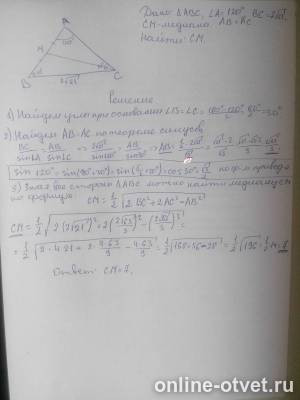 A
Дано: △ABC, ∠A=120°, BC=2√21,
CM-медиана, AB=AC
Найти: CM.
120°
M
B
2√21
C
Решение
1) Найдем углы при основании ∠B=∠C= (180°-120°)/2 = 30°
2) Найдем AB=AC по теореме синусов
BC/sin∠A = AB/sin∠C ⇒ 2√21/sin120° = AB/sin30° ⇒ AB=
sin 120° = sin(90°+30°) = cos30° = √3/2 по форм. привед
3) Зная все стороны △ABC можно найти медиану
по формуле: CM = 1/2 √(2BC²+2AC²-AB²)
CM = 1/2 √(2(2√21)²+2(2√63/3)²-(2√63/3)²) =
= 1/2 √(2·4·21+2·4·63/9 - 4·63/9) = 1/2 √(168+56-28) = 1/2 √196 = 1/2·14=7
Ответ: CM=7.
online-otvet.ru